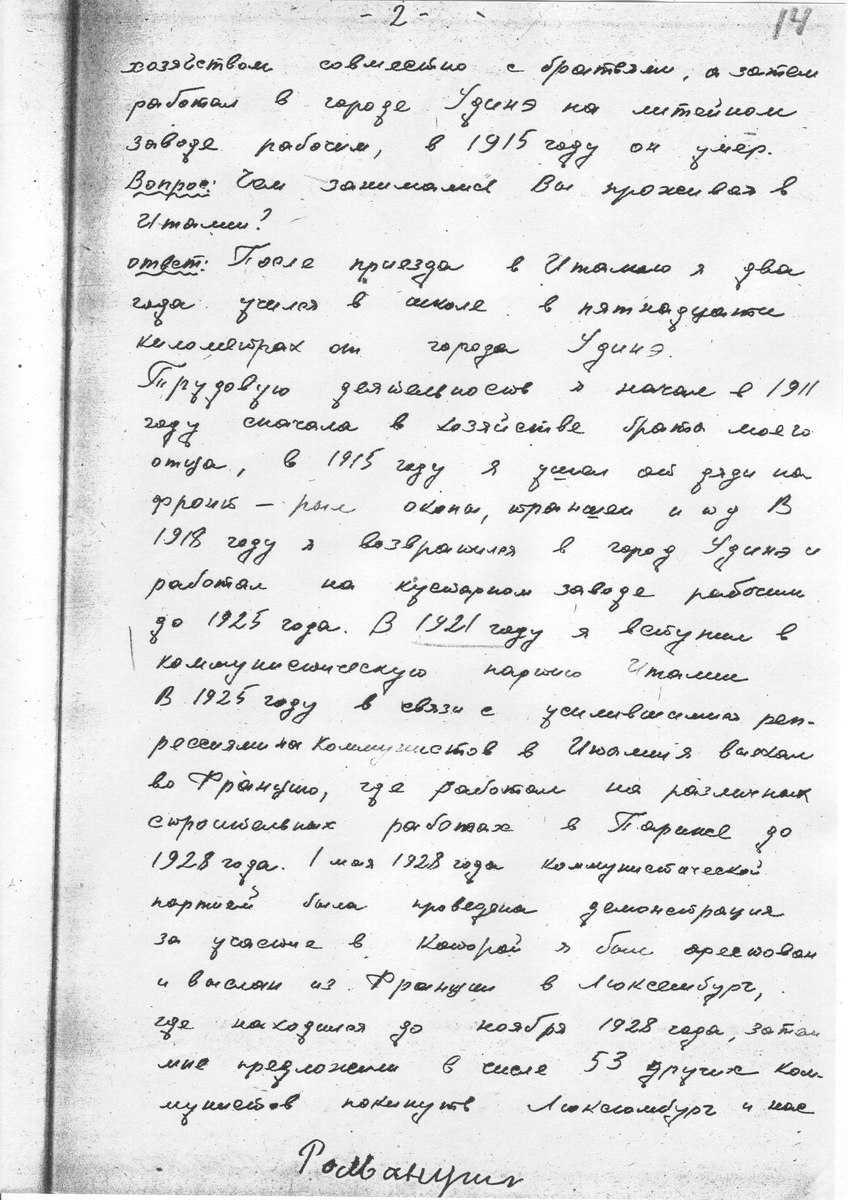 - 2 -
14
хозяйством совместно с братьями, а затем
работал в городе Удинэ на литейном
заводе рабочим, в 1915 году он умер.
Вопрос: Чем занимались Вы проживая в
Италии?
ответ: После приезда в Италию я два
года учился в школе в пятнадцати
километрах от города Удинэ.
Трудовую деятельность я начал в 1911
году сначала в хозяйстве брата моего
отца, в 1915 году я ушел от дяди на
фронт – рыл окопы, траншеи и т д В
1918 году я возвратился в город Удинэ и
работал на кустарном заводе рабочим
до 1925 года. В 1921 году я вступил в
коммунистическую партию Италии
В 1925 году в связи с усилившимися реп-
рессиями на коммунистов в Италии я выехал
во Францию, где работал на различных
строительных работах в Париже до
1928 года. 1 мая 1928 года коммунистической
партией была проведена демонстрация
за участие в которой я был арестован
и выслан из Франции в Люксембург,
где находился до ноября 1928 года, затем
мне предложили в числе 53 других ком-
мунистов покинуть Люксюмбург и нас